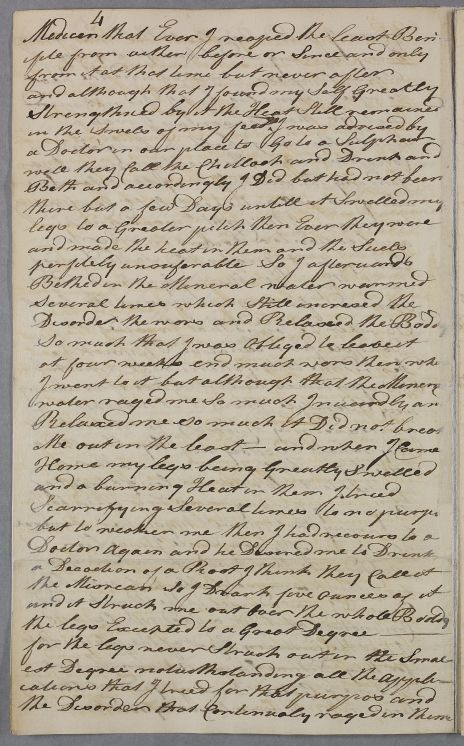 4
Medicen that Ever I reaped the least Ben
ifile from either before or Since and only
from it at that time but never after
and although that I found my Self Greatly
Strengthned by it the Heat Still remained
in the Swels of my feet I was advised by
a Doctor in our place to Go to a Sulphar
well they Call the Chilloch and Drink and
Beth and accordingly I Did but had not been
thire but a few Days untill it Swelled my
legs to a Greater pitch then Ever they were
and made the heat in them and the Suels
perfitely unsuferable So I afterwards
Bethed in the Mineral water warmed
Several times which Still incresed the
Disorder the wors and Relaxed the Body
So much that I was Obliged to leave it
at four weeks end much wors then whe
I went to it but although that the Minera
water raged me So much Inwardly an
Relaxed me so much it Did not break
Me out in the least — and when I Came
Home my legs being Greatly Swelled
and a burning Heat in them I tried
Scarrifying Several times to no purpu
but to weaken me then I had recours to a
Doctor Again and he Desired me to Drink
a Decoction of a Root I think they Call it
the Misrean So I Drank five ounces of it
and it Struck me out over the whole Body
the legs Excepted to a Great Degree —
for the legs never Struck out in the Smal
est Degree notwithstanding all the apple
cations that I tried for that purpos and
the Disorder that Continualy raged in them